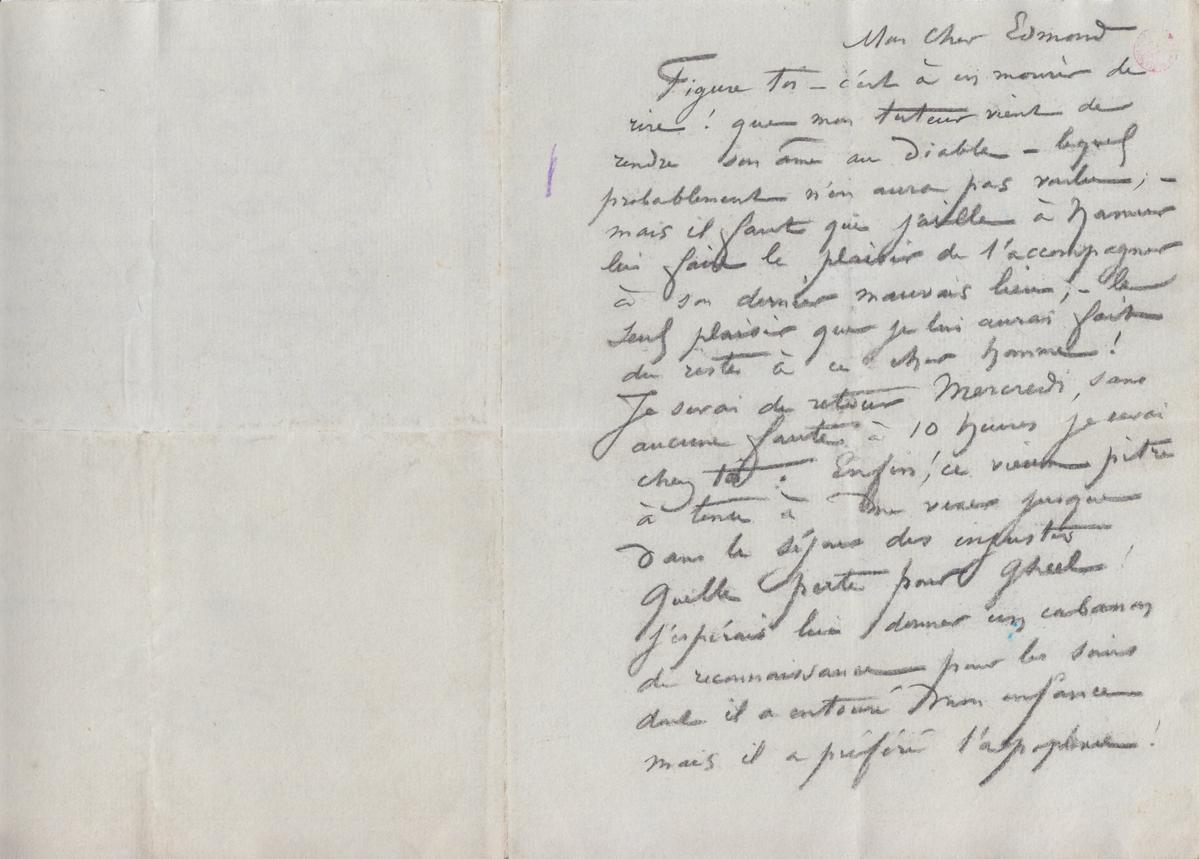 Mon Cher Edmond
Figure toi – c'est à en mourir de
rire ! que mon tuteur vient de
rendre son âme au Diable – lequel
probablement n'en aura pas voulu ; –
mais il faut que j'aille à Namur
lui faire le plaisir de l'accompagner
à son dernier mauvais lieu ; – le
seul plaisir que je lui aurai fait
du reste à ce cher homme !
Je serai de retour Mercredi, sans
aucune faute à 10 heures je serai
chez toi. Enfin ! ce vieux pitre
à tenu à me vexer jusque
dans le séjour des injustes
Quelle perte pour Gheel !
j'espérais lui donner un cabanon
de reconnaissance pour les soins
dont il a entouré mon enfance
mais il a préféré l'apoplexie !